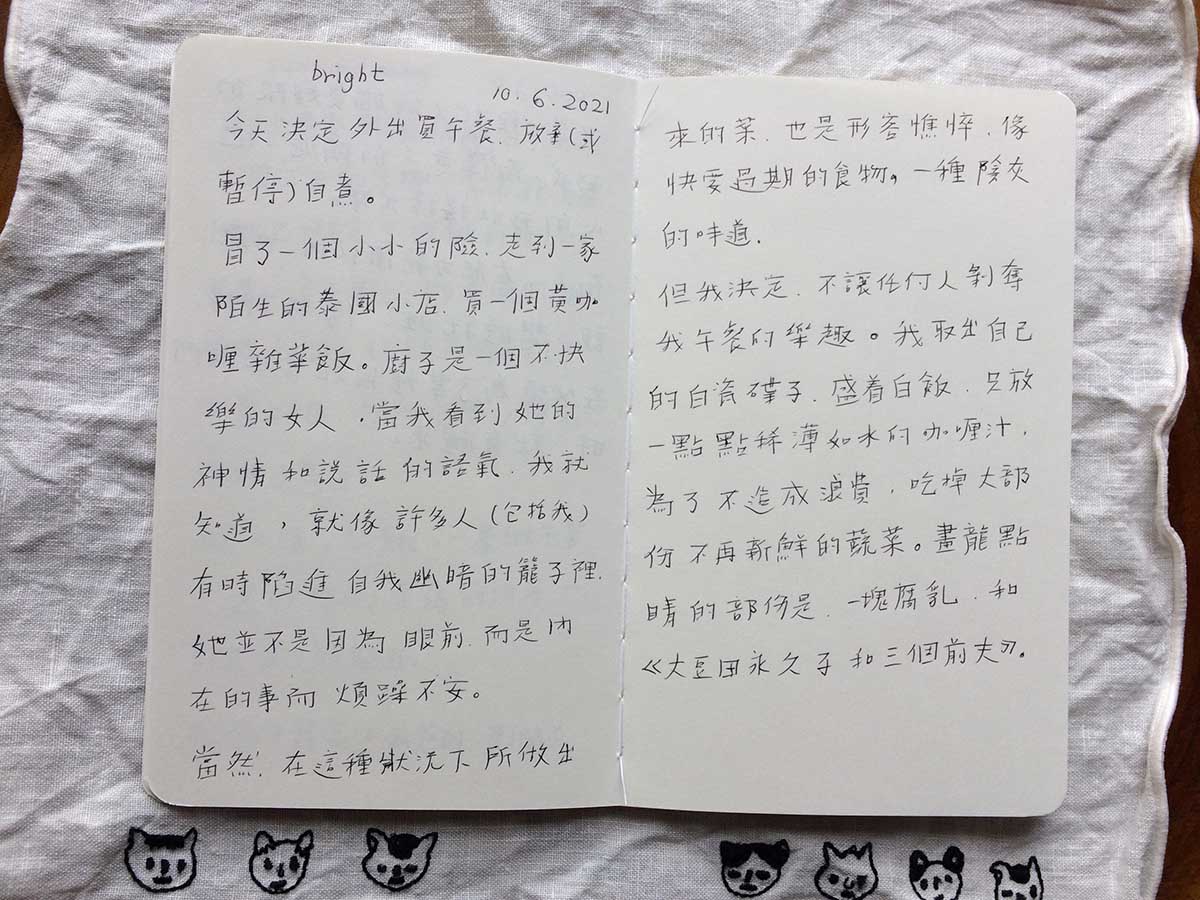 bright
10.6.2021
今天決定外出買午餐、放棄(或
暫停)自煮。
冒了一個小小的險、走到一家
陌生的泰國小店、買一個黃咖
喱雜菜飯。廚子是一個不快
樂的女人，當我看到她的
神情和說話的語氣、我就
知道，就像許多人(包括我)
有時陷進自我幽暗的籠子裡、
她並不是因為眼前、而是內
在的事而煩躁不安。
當然、在這種狀況下所做出
來的菜、也是形容憔悴、像
快要過期的食物，一種陰灰
的味道、
但我決定、不讓任何人剝奪
我午餐的樂趣。我取出自己
的白瓷碟子、盛着白飯、只放
一點點稀薄如水的咖喱汁，
為了不造成浪費，吃掉大部
份不再新鮮的蔬菜。畫龍點
睛的部份是、一塊腐乳、和
《大豆田永久子和三個前夫》。